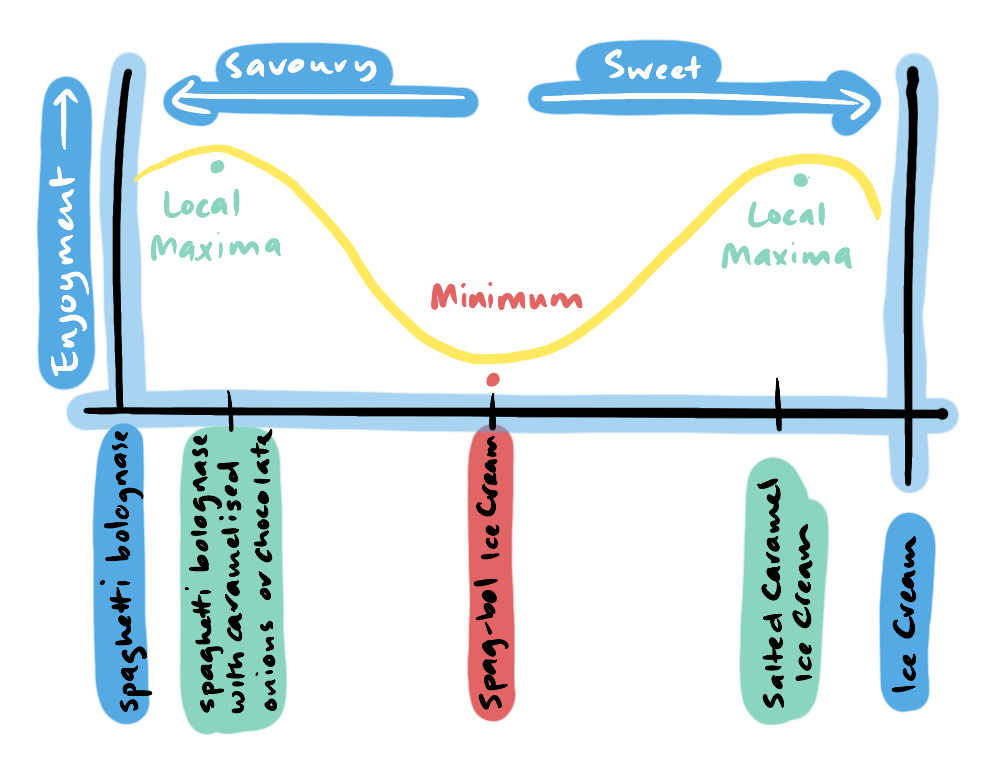 Savoury
Sweet
Enjoyment
Local
Maxima
Local
Maxima
Minimum
spaghetti bolognase
spaghetti bolognase
with caramelised
onions or chocolate
Spag-bol Ice Cream
Salted Caramel
Ice Cream
Ice Cream